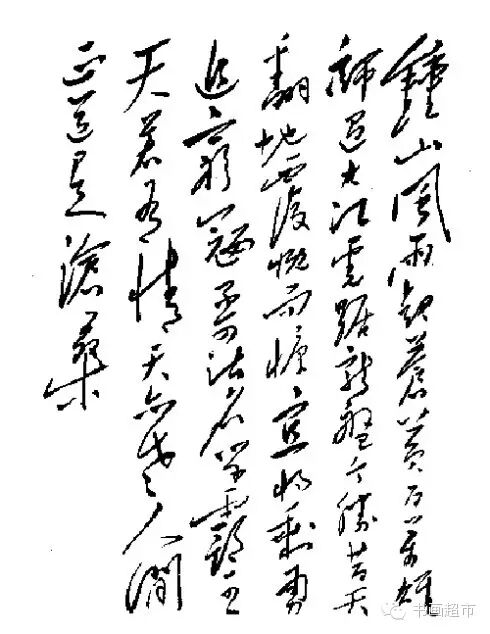 鍾山風雨起蒼黃百萬雄
師過大江虎踞龍盤今勝昔天
翻地覆慨而慷宜將剩勇
追窮寇不可沽名學霸王
天若有情天亦老人間
正道是滄桑
书画超市